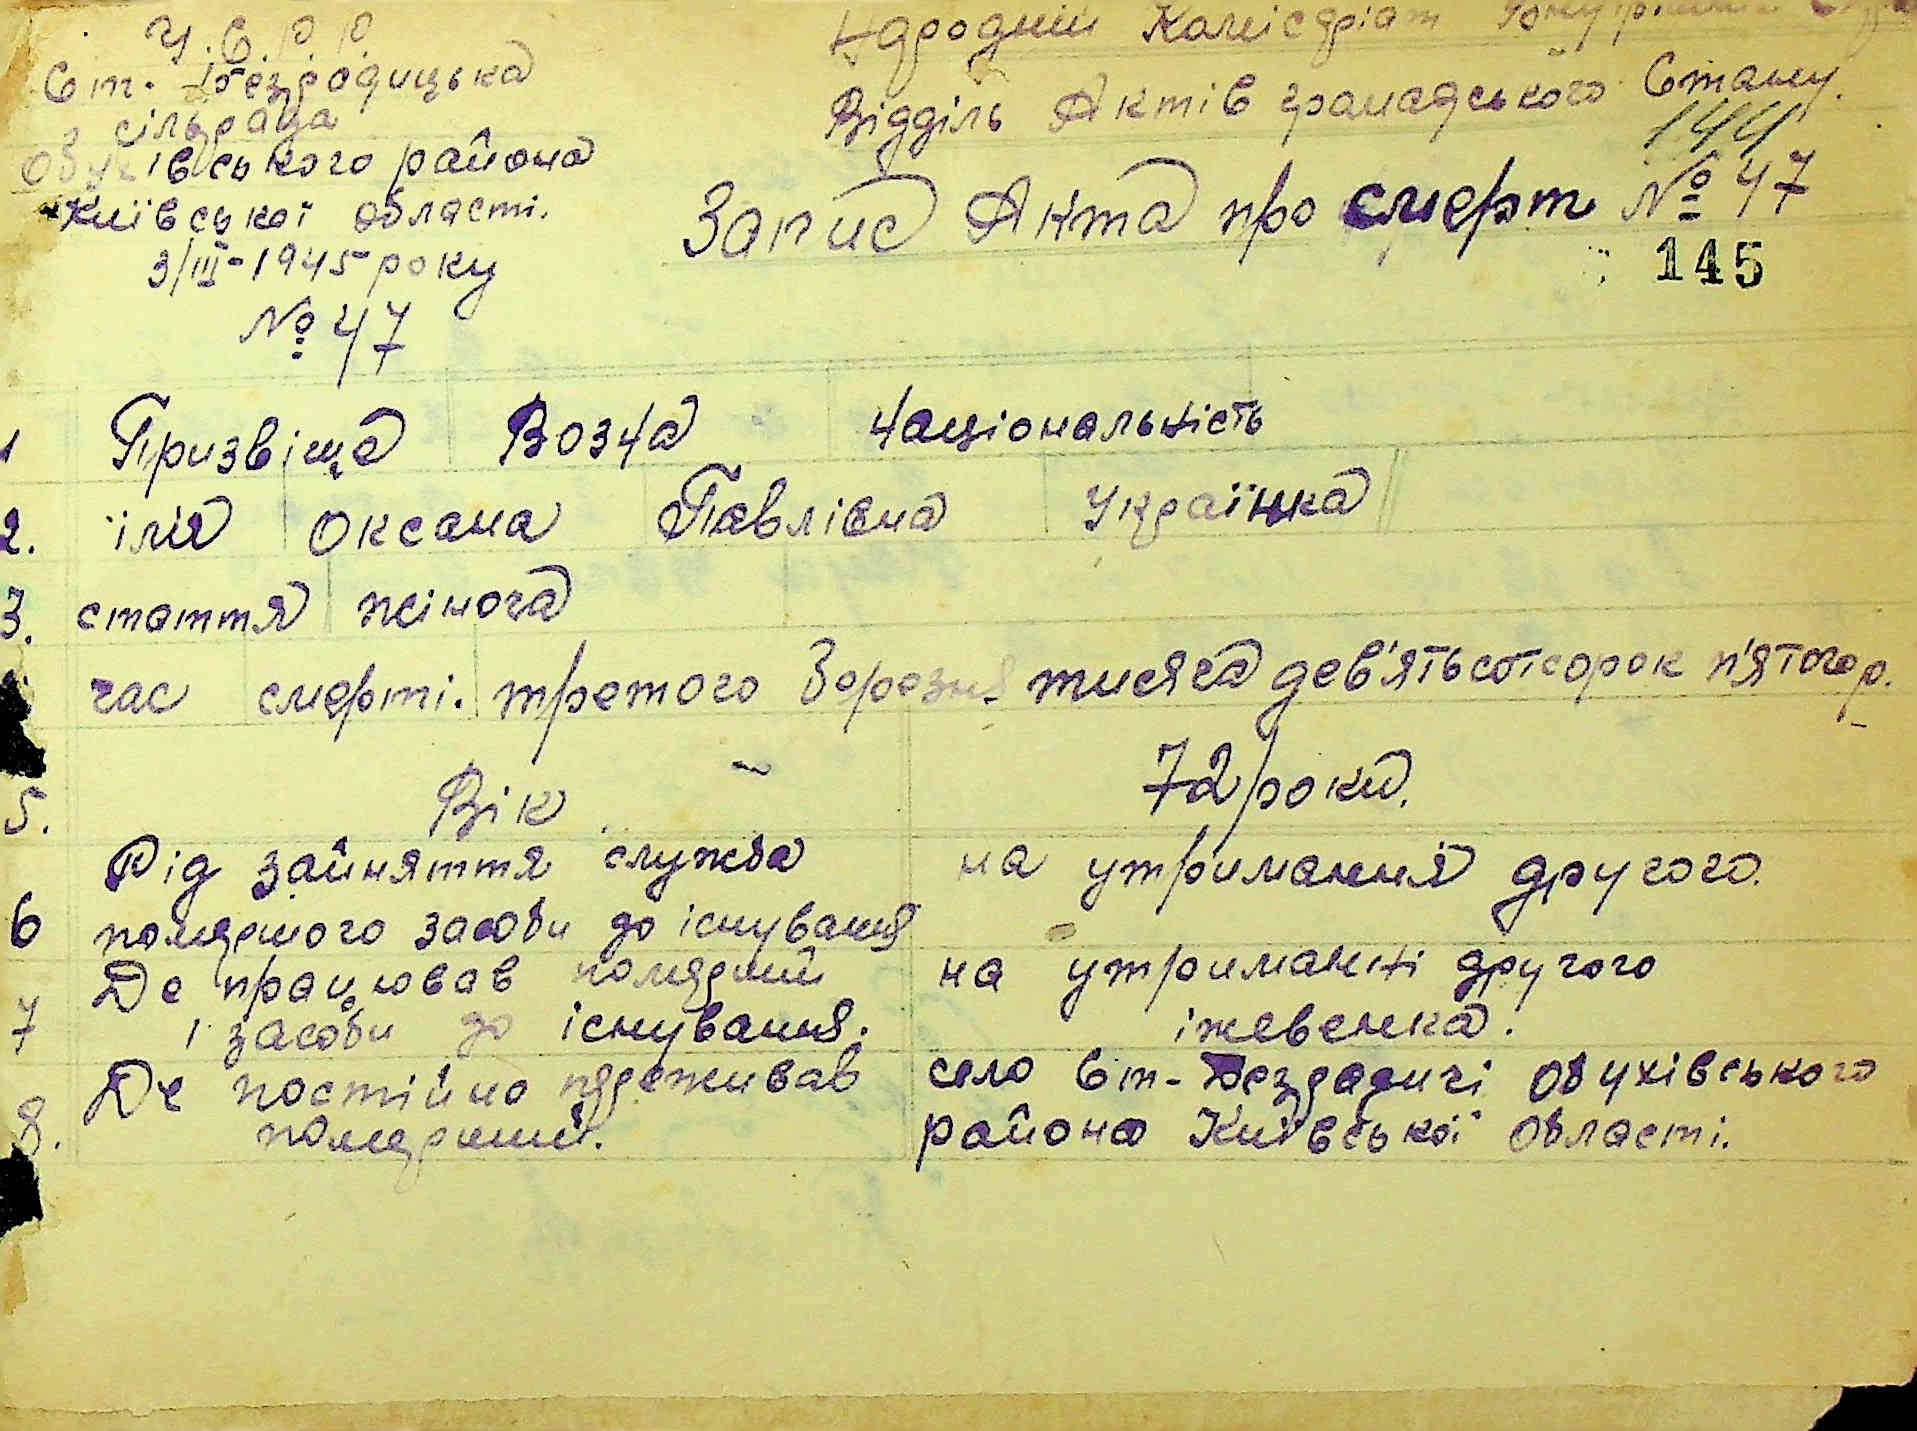 У.С.Р.Р.
Ст. Безродицька
сільрада
Обухівського района
Київської області.
3/III-1945 року
№ 47
Народній Комісаріат
Відділь Актів громадського Стану.
144
Запис Акта про смерт № 47
145
1 Призвіща Возна Національність
2. імя Оксана Павлівна Українка
3. стаття жіноча
час смерті. третого Березня тисяча дев'ятьсотсорок п'ятого р.
5. Вік 72 роки.
Рід зайняття служба на утримання другого.
6 помершого засоби до існування
Де працював померший на утриманні другого
7 і засоби до існування. іжевенка.
Де постійно преживав село Ст-Бездрадичі Обухівського
8. померший. района Київської Області.